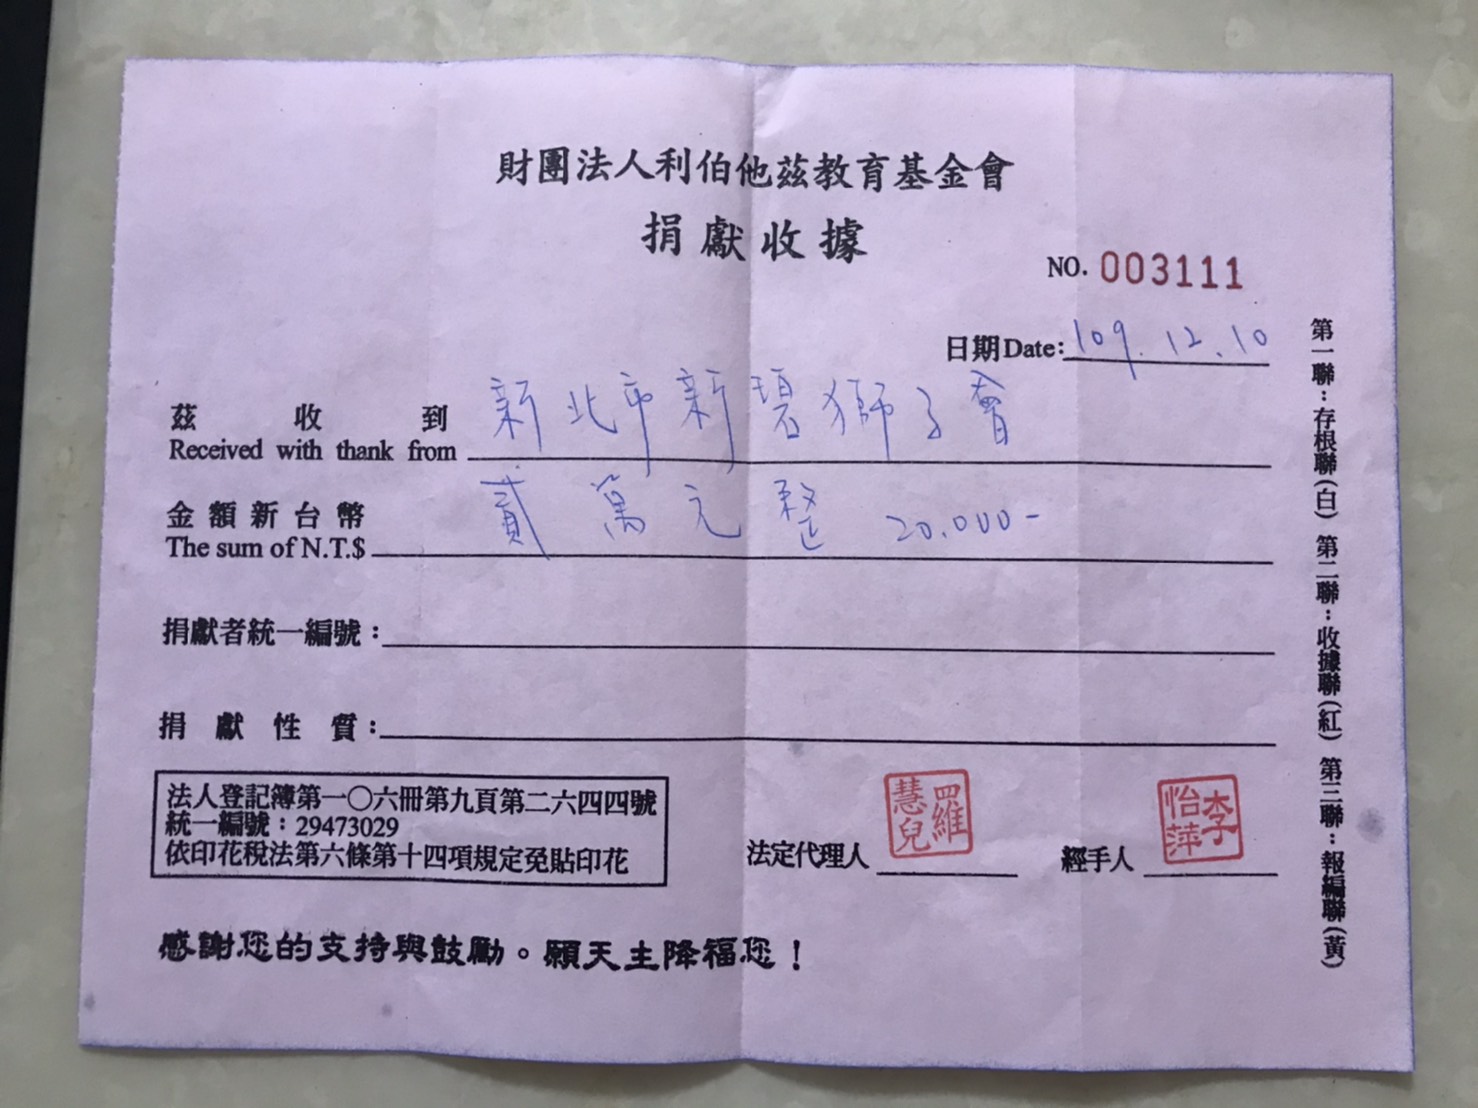 財團法人利伯他茲教育基金會
捐獻收據
NO. 003111
日期Date: 109.12.10
茲收到 新北市新碧獅子會
Received with thank from
金額新台幣 貳萬元整 20.000-
The sum of N.T.$
捐獻者統一編號：
捐獻性質：
法人登記簿第一〇六冊第九頁第二六四四號
統一編號：29473029
依印花稅法第六條第十四項規定免貼印花
法定代理人 羅慧兒
經手人 李怡萍
感謝您的支持與鼓勵。願天主降福您！
第一聯：存根聯(白) 第二聯：收據聯(紅) 第三聯：報編聯(黃)